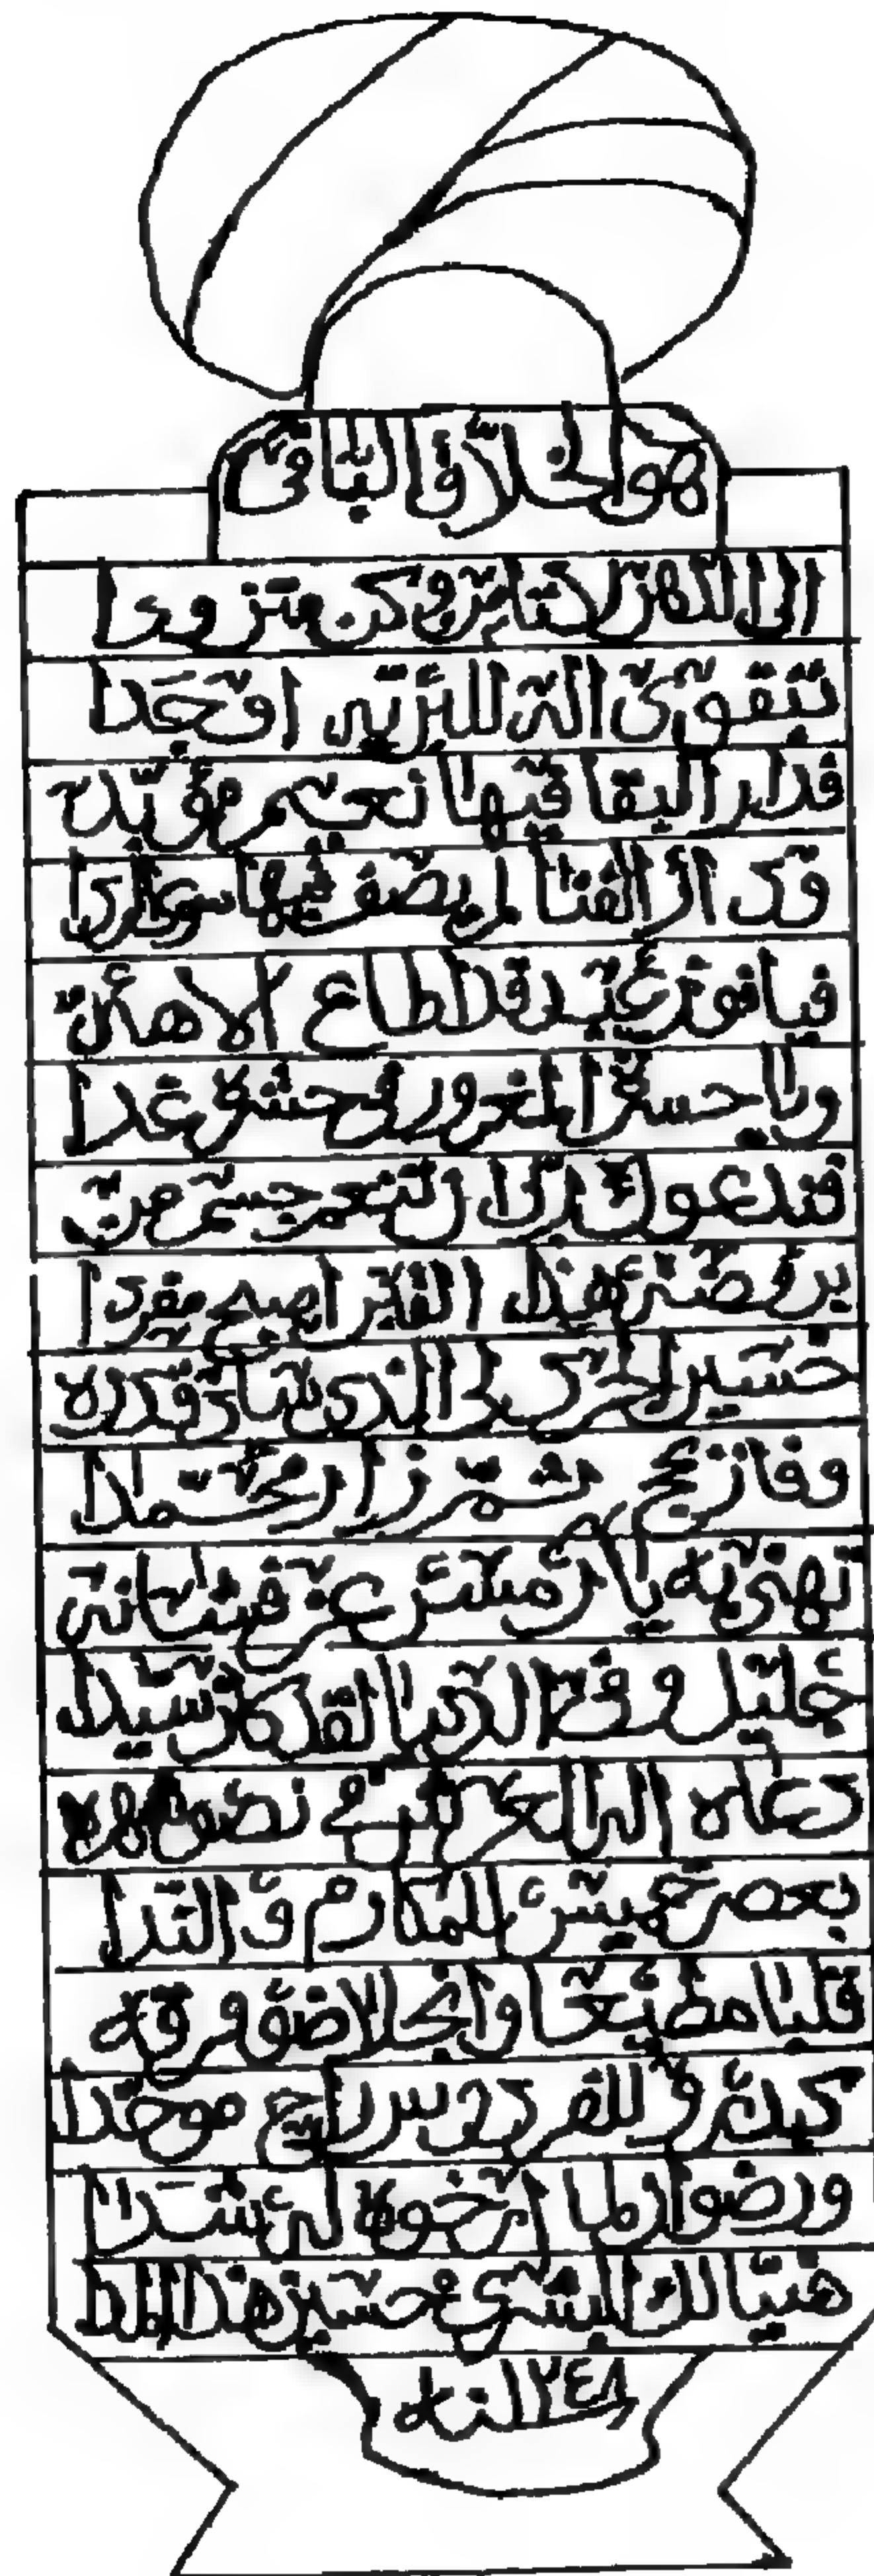 هو الخلاق الباقي
الى الله سر وكن متزودا
بتقوى اله للبريه اوجدا
فدار البقا فيها نعيم مؤبد
ودار الفنا لم يصف فيها
فيا فوز عبد قد اطاع لامره
ويا حسرة المغرور في حشره غدا
فندعوك ربي ان تنعم جسم من
بروضة هذا القبر اصبح مفردا
حسين الذي شاد قدره
وفاز بحج ثم زار محمدا
تهنى به يا رمس عز فشانه
جليل وفي الدنيا لقد كان سيدا
دعاه اله العرش
المكارم والندا
فلبا مطيعا وانجلا ضوء فرقه
كبدر وللفردوس راح موحدا
ورضوان لما ارخوه له شدا
هنيا لك البشرى حسين
سنه ١٢٤٨